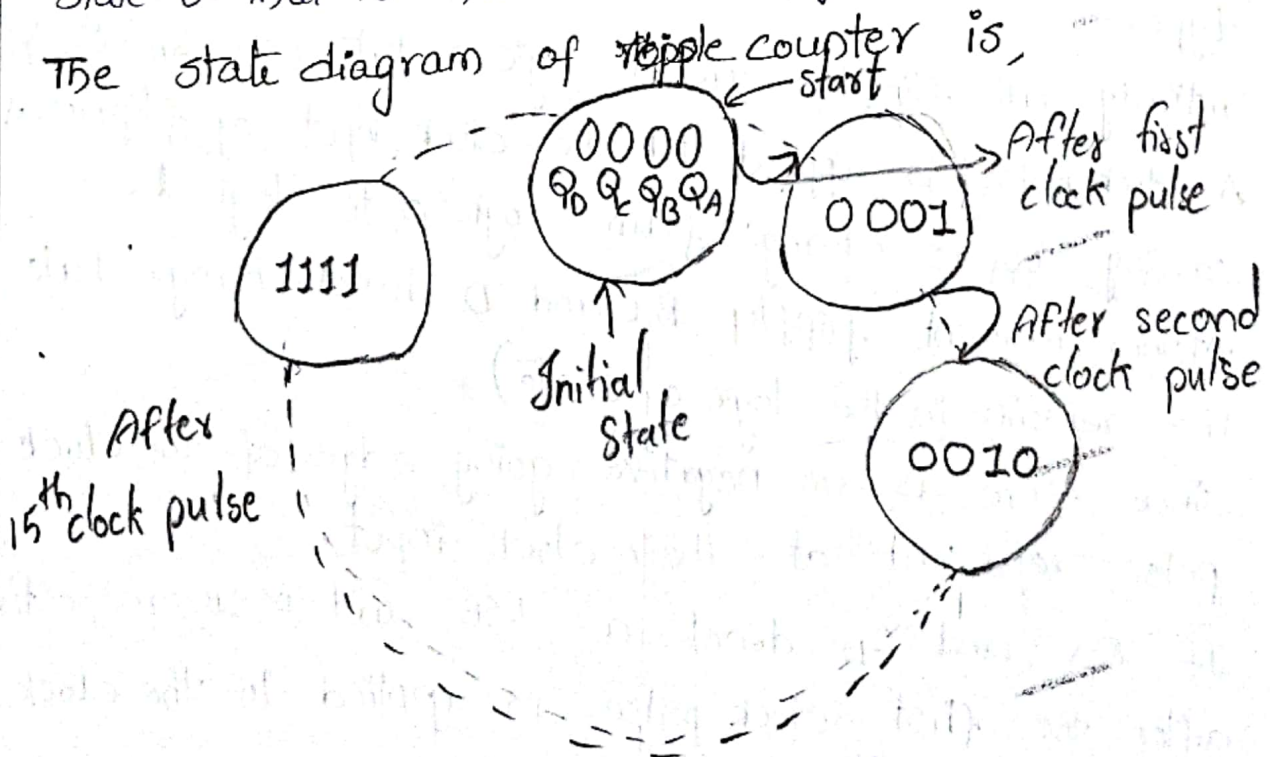 The state diagram of ripple counter is,
start
0000
QD QC QB QA
0001
After first
clock pulse
1111
Initial
State
After second
clock pulse
0010
After
15th clock pulse